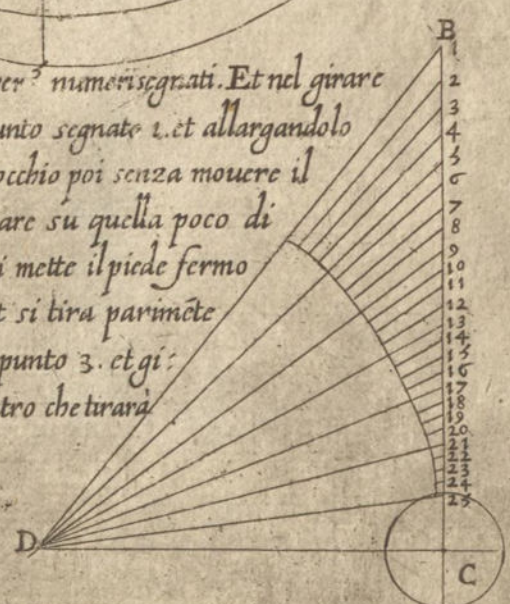 B
per 3 numeri segnati. Et nel girare
punto segnato 1. et allargandolo
occhio poi senza mouere il
are su quella poco di
i mette il piede fermo
t si tira parimēte
punto 3. et gi:
tro che tirarà
1
2
3
4
5
6
7
8
9
10
11
12
13
14
15
16
17
18
19
20
21
22
23
24
25
D
C